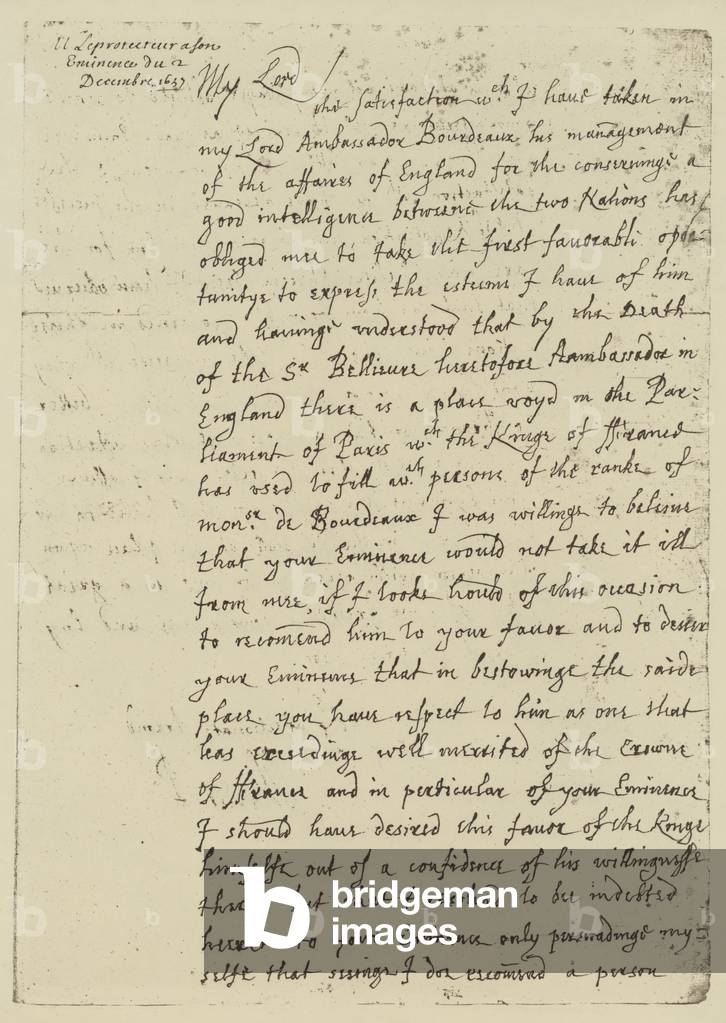 Le protecteur a son
Eminence du 2
Decembre 1657
My Lord
the satisfaction wch I have taken in
my Lord Ambassador Bourdeaux his management
of the affaires of England for the conservinge a
good intelligence betweene the two Nations has
obliged mee to take the first favorable opor-
tunitye to express the esteeme I have of him
and havinge understood that by the Death
of the Sr Bellieure heretofore Aambassador in
England there is a place voyd in the Par-
liament of Paris wch the Kinge of ffrance
has used to fill wth persons of the ranke of
monsr de Bourdeaux I was willinge to beleive
that your Eminence would not take it ill
from mee, if I tooke hould of this occasion
to recomend him to your favor and to desire
your Eminence that in bestowinge the saide
place you have respect to him as one that
has exceedinge well merrited of the Crowne
of ffrance and in perticular of your Eminence
I should have desired this favor of the Kinge
himselfe out of a confidence of his willingnesse
to be indebted
only perswadinge my-
selfe that seeinge I doe recomend a person
bridgeman
images